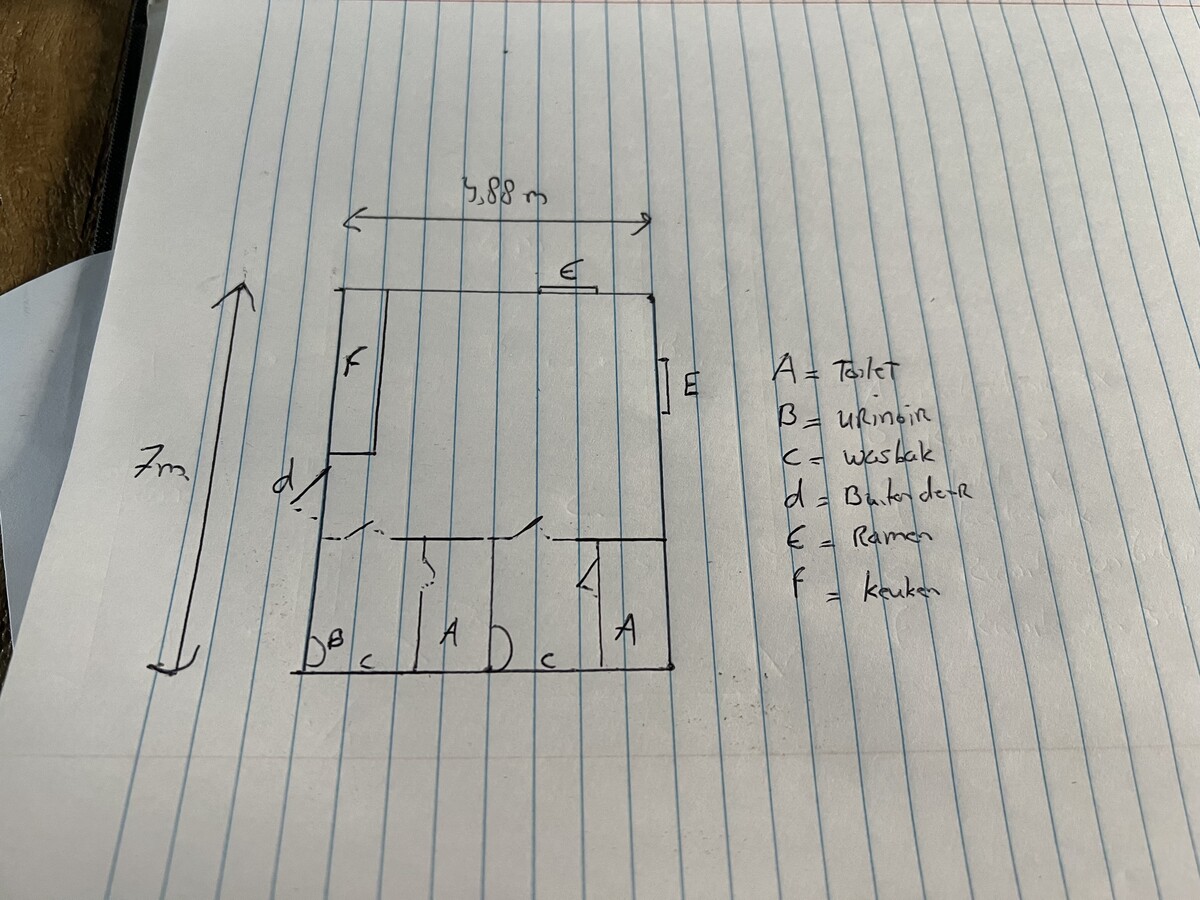 5,88 m
E
F
E
7m
d
B
C
A
C
A
A = Toilet
B = URinoiR
C = wasbak
d = Buitendeur
E = Ramen
F = keuken